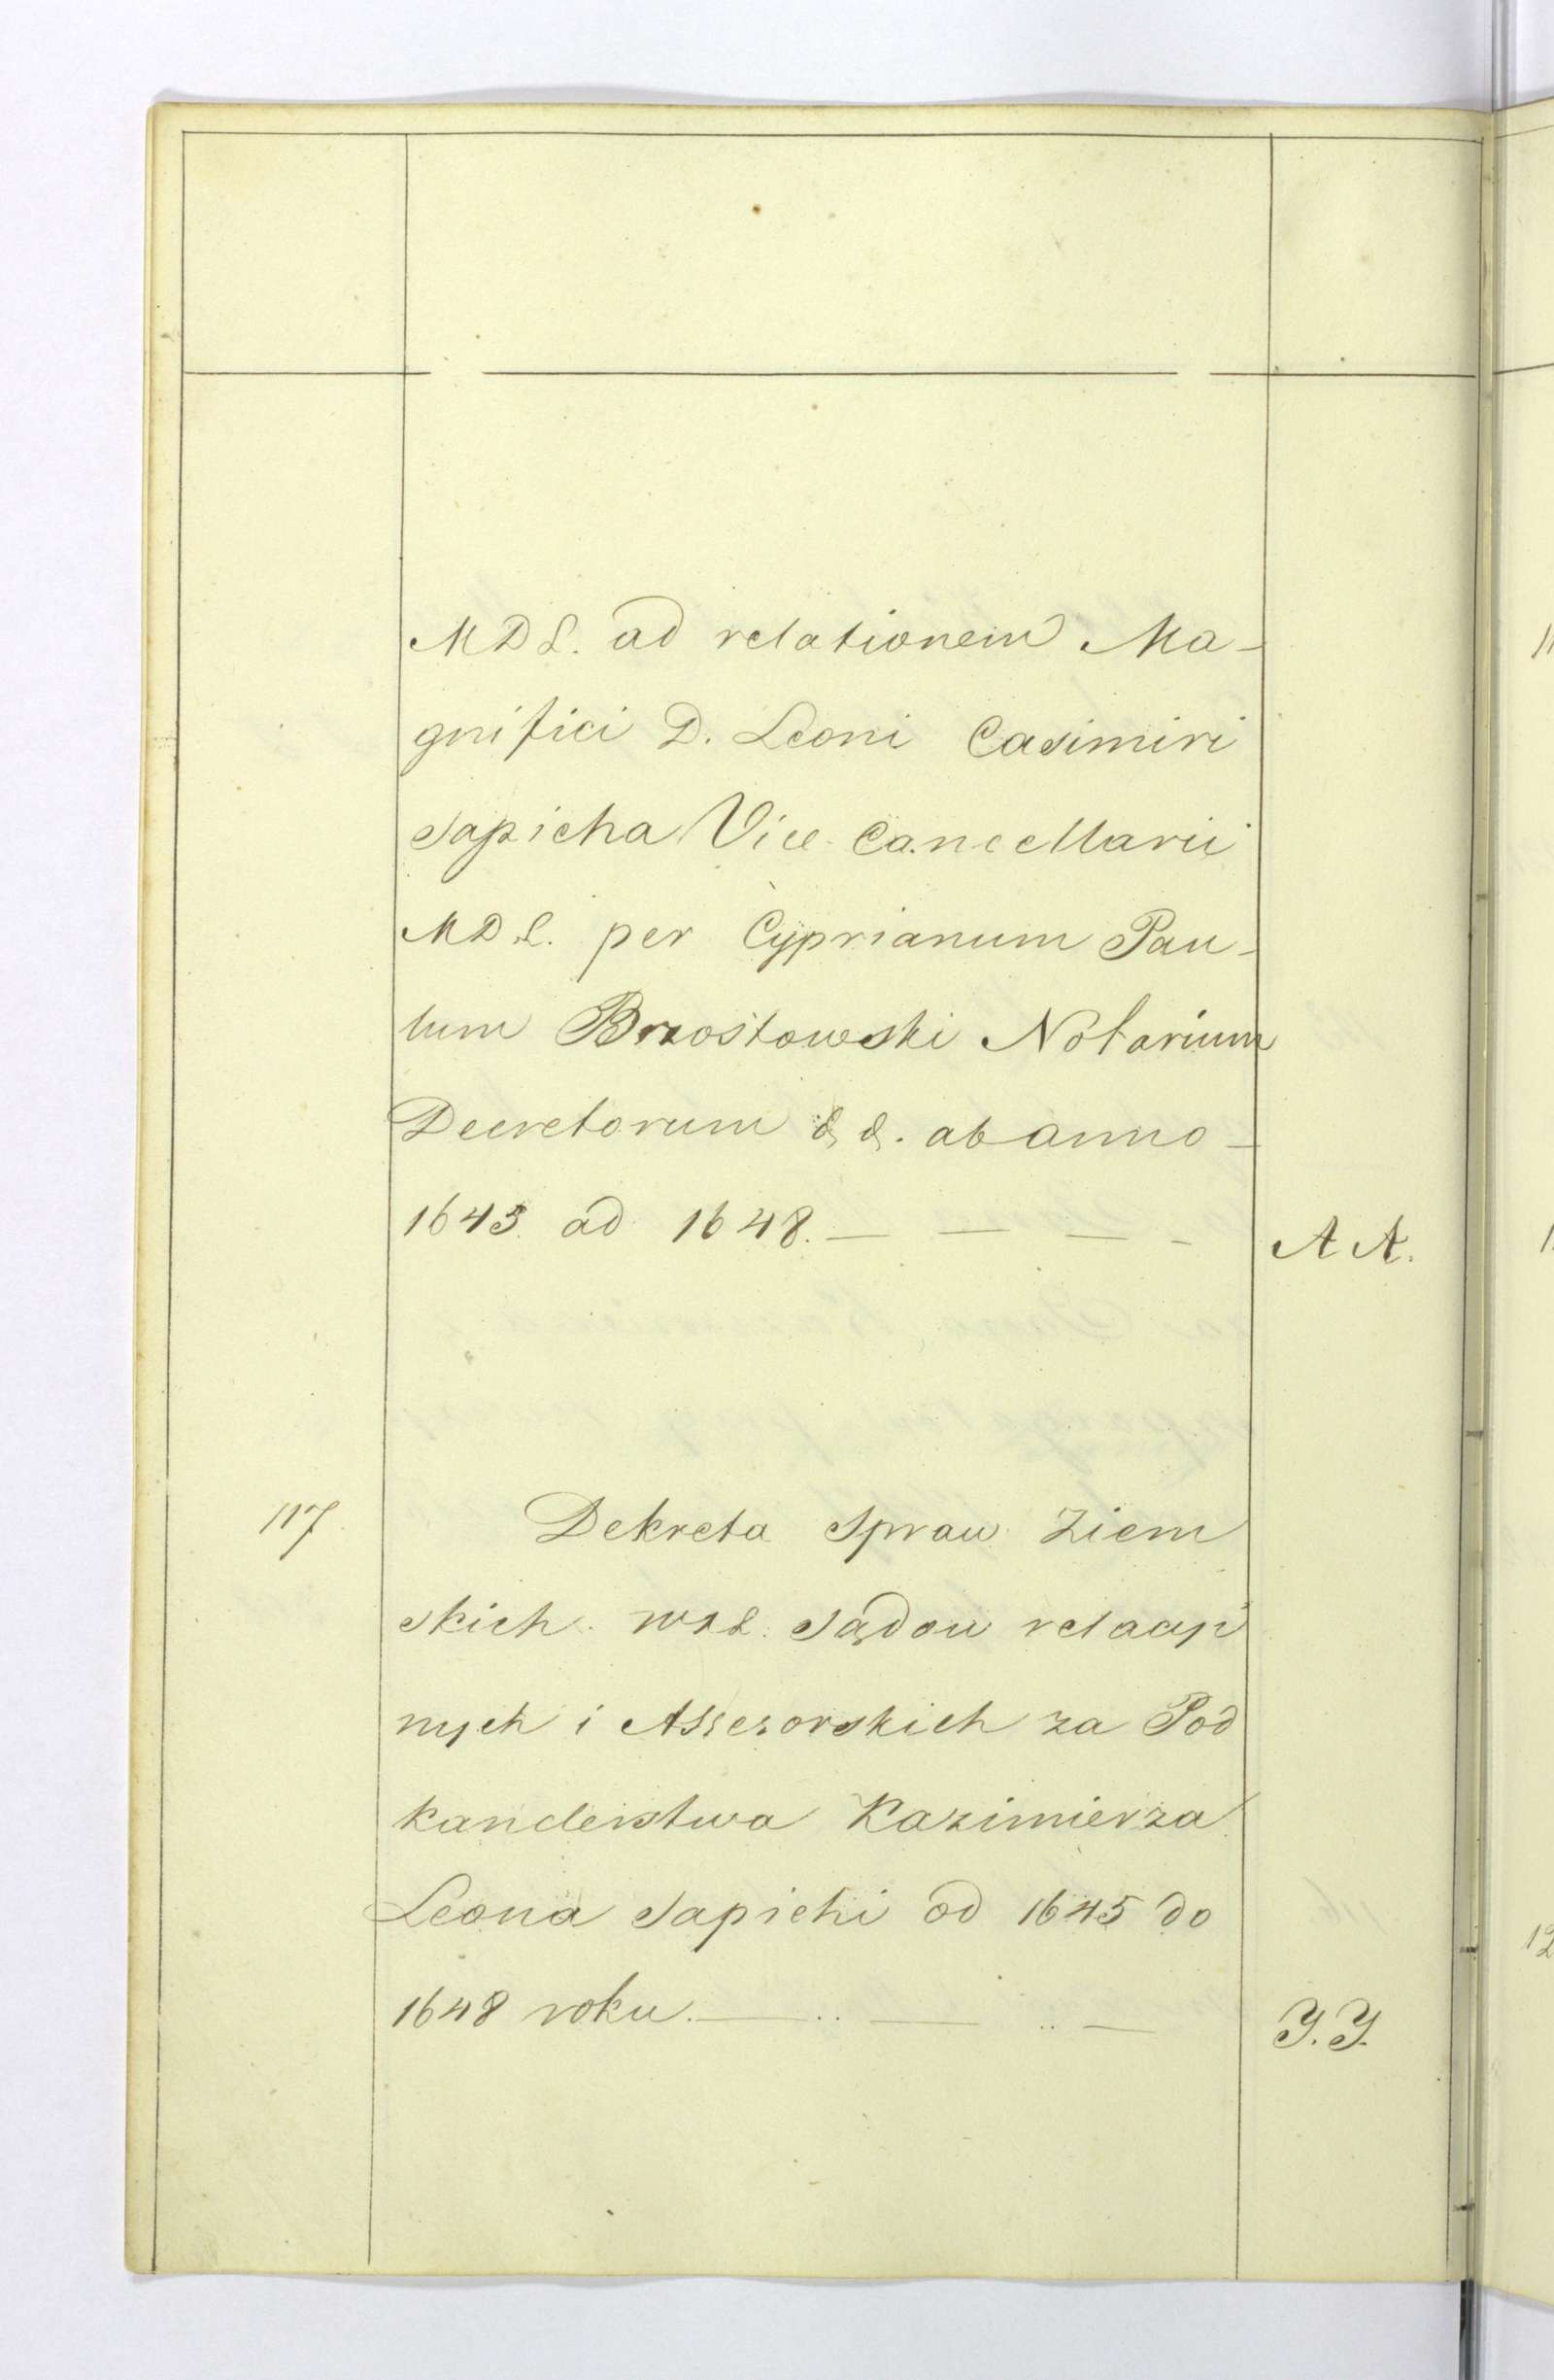 MDL. ad relationem Ma-
gnifici D. Leoni Casimiri
Sapieha Vice-Cancellarii
MDL. per Cyprianum Pau-
lum Brzostowski Notarium
Decretorum & &. ab anno -
1643 ad 1648. — — — - A A.
117 Dekreta Spraw Ziem
skich. WXL. Sądow relacyi
nych i Assesorskich za Pod
kanclerstwa Kazimierza
Leona Sapiehi od 1645 do
1648 roku. — .. — .. — Y. Y.